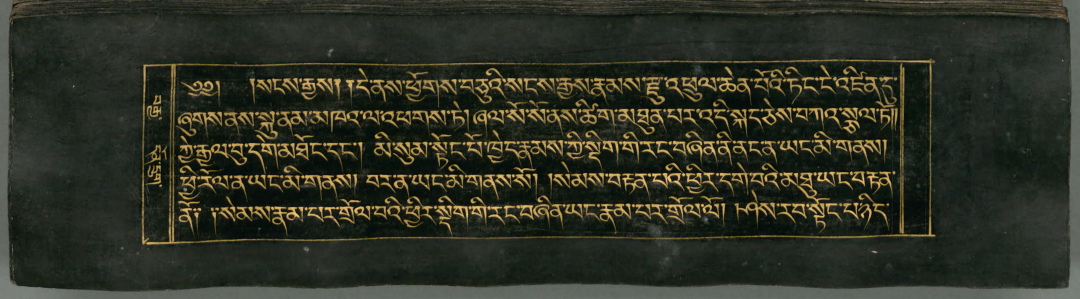 ༄༅། །སངས་རྒྱས། །དེ་ནས་ཕྱོགས་བཅུའི་སངས་རྒྱས་རྣམས་རྫུ་འཕྲུལ་ཆེན་པོའི་ཏིང་ངེ་འཛིན་དུ་
ཞུགས་ནས་སྐུ་ནམ་མཁའ་ལ་འཕགས་ཏེ། ཞལ་སོ་སོ་ནས་ཚིག་མཐུན་པར་འདི་སྐད་ཅེས་བཀའ་སྩལ་ཏོ།།
ཀྱེ་རྒྱལ་བུ་དགེ་མཐོང་དང་། མི་སུམ་སྟོང་པོ་ཁྱེད་རྣམས་ཀྱི་སྡིག་གི་རང་བཞིན་ནི་ནང་ན་ཡང་མི་གནས།
ཕྱི་རོལ་ན་ཡང་མི་གནས། བར་ན་ཡང་མི་གནས་སོ། །སེམས་བརྟན་པའི་ཕྱིར་དགེ་བའི་མཐུ་ཡང་བརྟན་
ནོ། །སེམས་རྣམ་པར་གྲོལ་བའི་ཕྱིར་སྡིག་གི་རང་བཞིན་ཡང་རྣམ་པར་གྲོལ་ལོ། །ཤེས་རབ་སྟོང་པ་ཉིད་